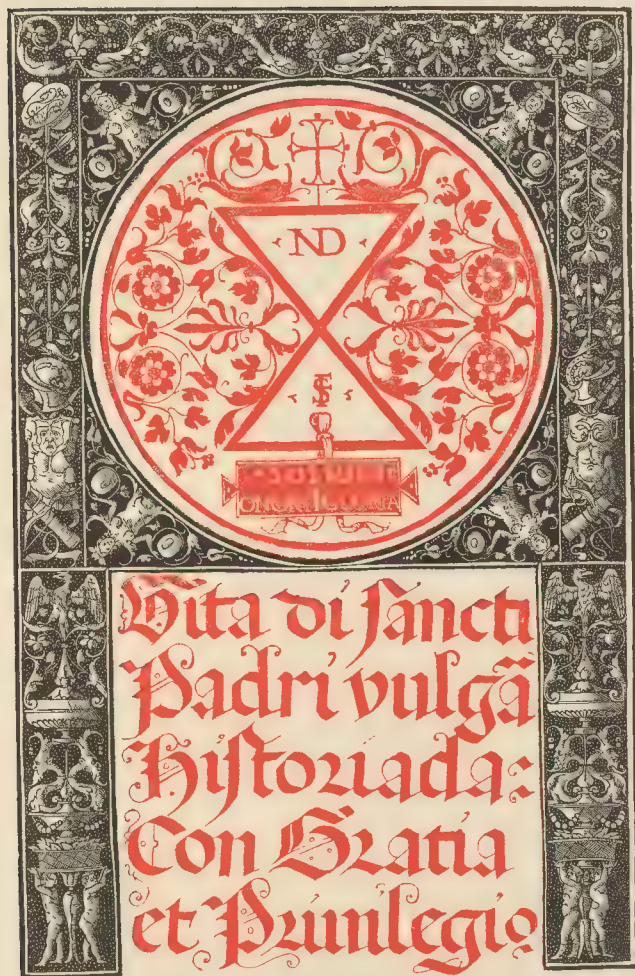 ND
Vita di sancti
Padri vulgã
Historiada:
Con Gratia
et Priuilegio